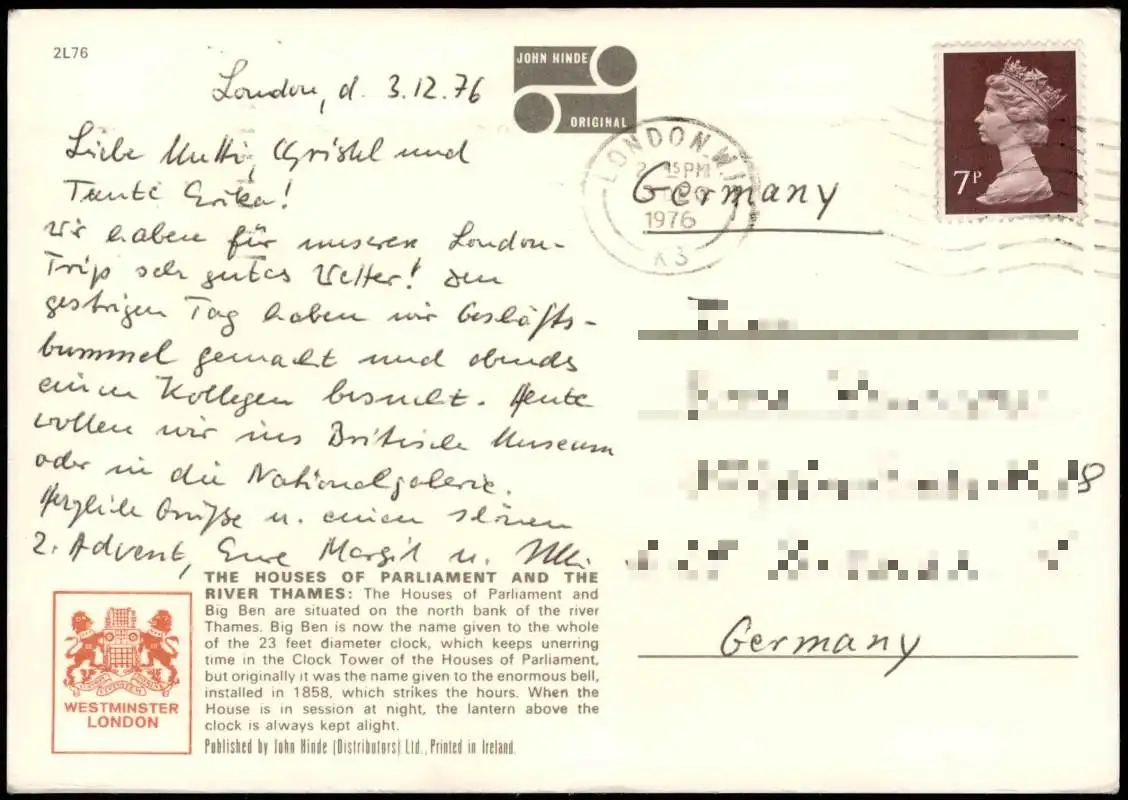 2L76
London, d. 3.12.76
JOHN HINDE
ORIGINAL
Liebe Mutti, Christel und
Tante Erika!
Wir haben für unseren London-
Trip sehr gutes Wetter! Den
gestrigen Tag haben wir Geschäfts-
bummel gemacht und abends
einen Kollegen besucht. Heute
wollen wir ins Britische Museum
oder in die Nationalgalerie.
Herzliche Grüße u. einen schönen
2. Advent, Eure Margit u.
LONDON.W.1
15PM
1976
K3
7P
Germany
8
Germany
THE HOUSES OF PARLIAMENT AND THE
RIVER THAMES: The Houses of Parliament and
Big Ben are situated on the north bank of the river
Thames. Big Ben is now the name given to the whole
of the 23 feet diameter clock, which keeps unerring
time in the Clock Tower of the Houses of Parliament,
but originally it was the name given to the enormous bell,
installed in 1858, which strikes the hours. When the
House is in session at night, the lantern above the
clock is always kept alight.
Published by John Hinde (Distributors) Ltd., Printed in Ireland.
WESTMINSTER
LONDON